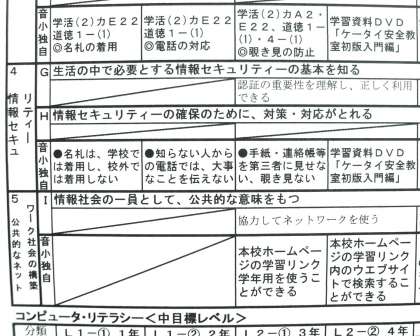 音小独自
学活(2)カE22
道徳1-(1)
◎名札の着用
学活(2)カE22
道徳1-(1)
◎電話の対応
学活(2)カA2・
E22、道徳1-
(1)・4-(1)
◎覗き見の防止
学習資料DVD
「ケータイ安全教
室初版入門編」
4
情報セキュ
リティー
G 生活の中で必要とする情報セキュリティーの基本を知る
認証の重要性を理解し、正しく利用
できる
H 情報セキュリティーの確保のために、対策・対応がとれる
音小独自
●名札は、学校で
は着用し、校外で
は着用しない
●知らない人から
の電話では、大事
なことを伝えない
●手紙・連絡帳等
を第三者に見せな
い、覗き見ない
学習資料DVD
「ケータイ安全教
室初版入門編」
5
公共的なネット
ワーク社会の構築
I 情報社会の一員として、公共的な意味をもつ
協力してネットワークを使う
音小独自
本校ホームペー
ジの学習リンク
学年用を使うこ
とができる
本校ホームペー
ジの学習リンク
内のウエブサイ
トで検索するこ
とができる
コンピュータ・リテラシー<中目標レベル>
分類
L1-① 1年
L1-② 2年
L2-① 3年
L2-② 4年